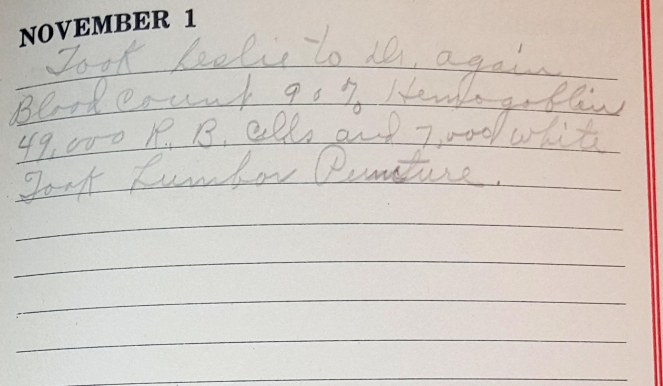 NOVEMBER 1
Took Leslie to Dr. again
Blood Count 90% Hemogoblin
49,000 R. B. Cells and 7,000 white
Took Lumbar Puncture.